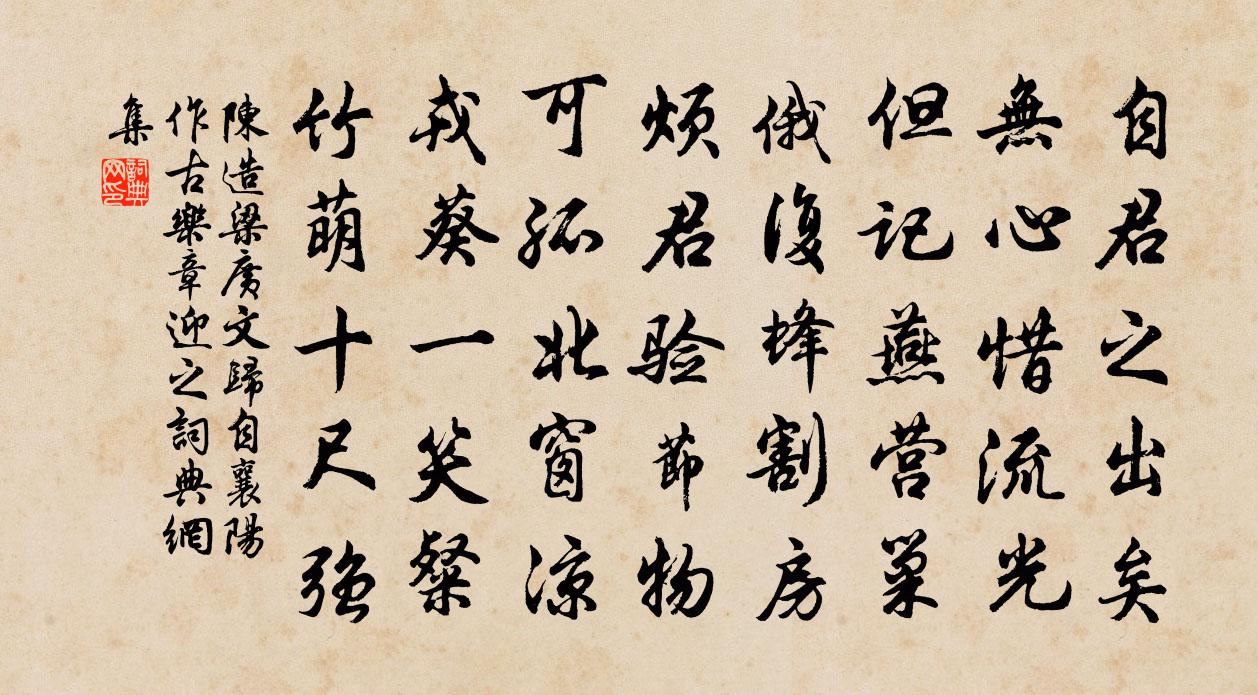 自君之出矣
無心惜流光
但记燕营巢
俄復蜂割房
煩君验節物
可孤北窗凉
戎葵一笑粲
竹萌十尺强
陳造梁廣文歸自襄陽
作古樂章迎之詞典網
集
詞典網印